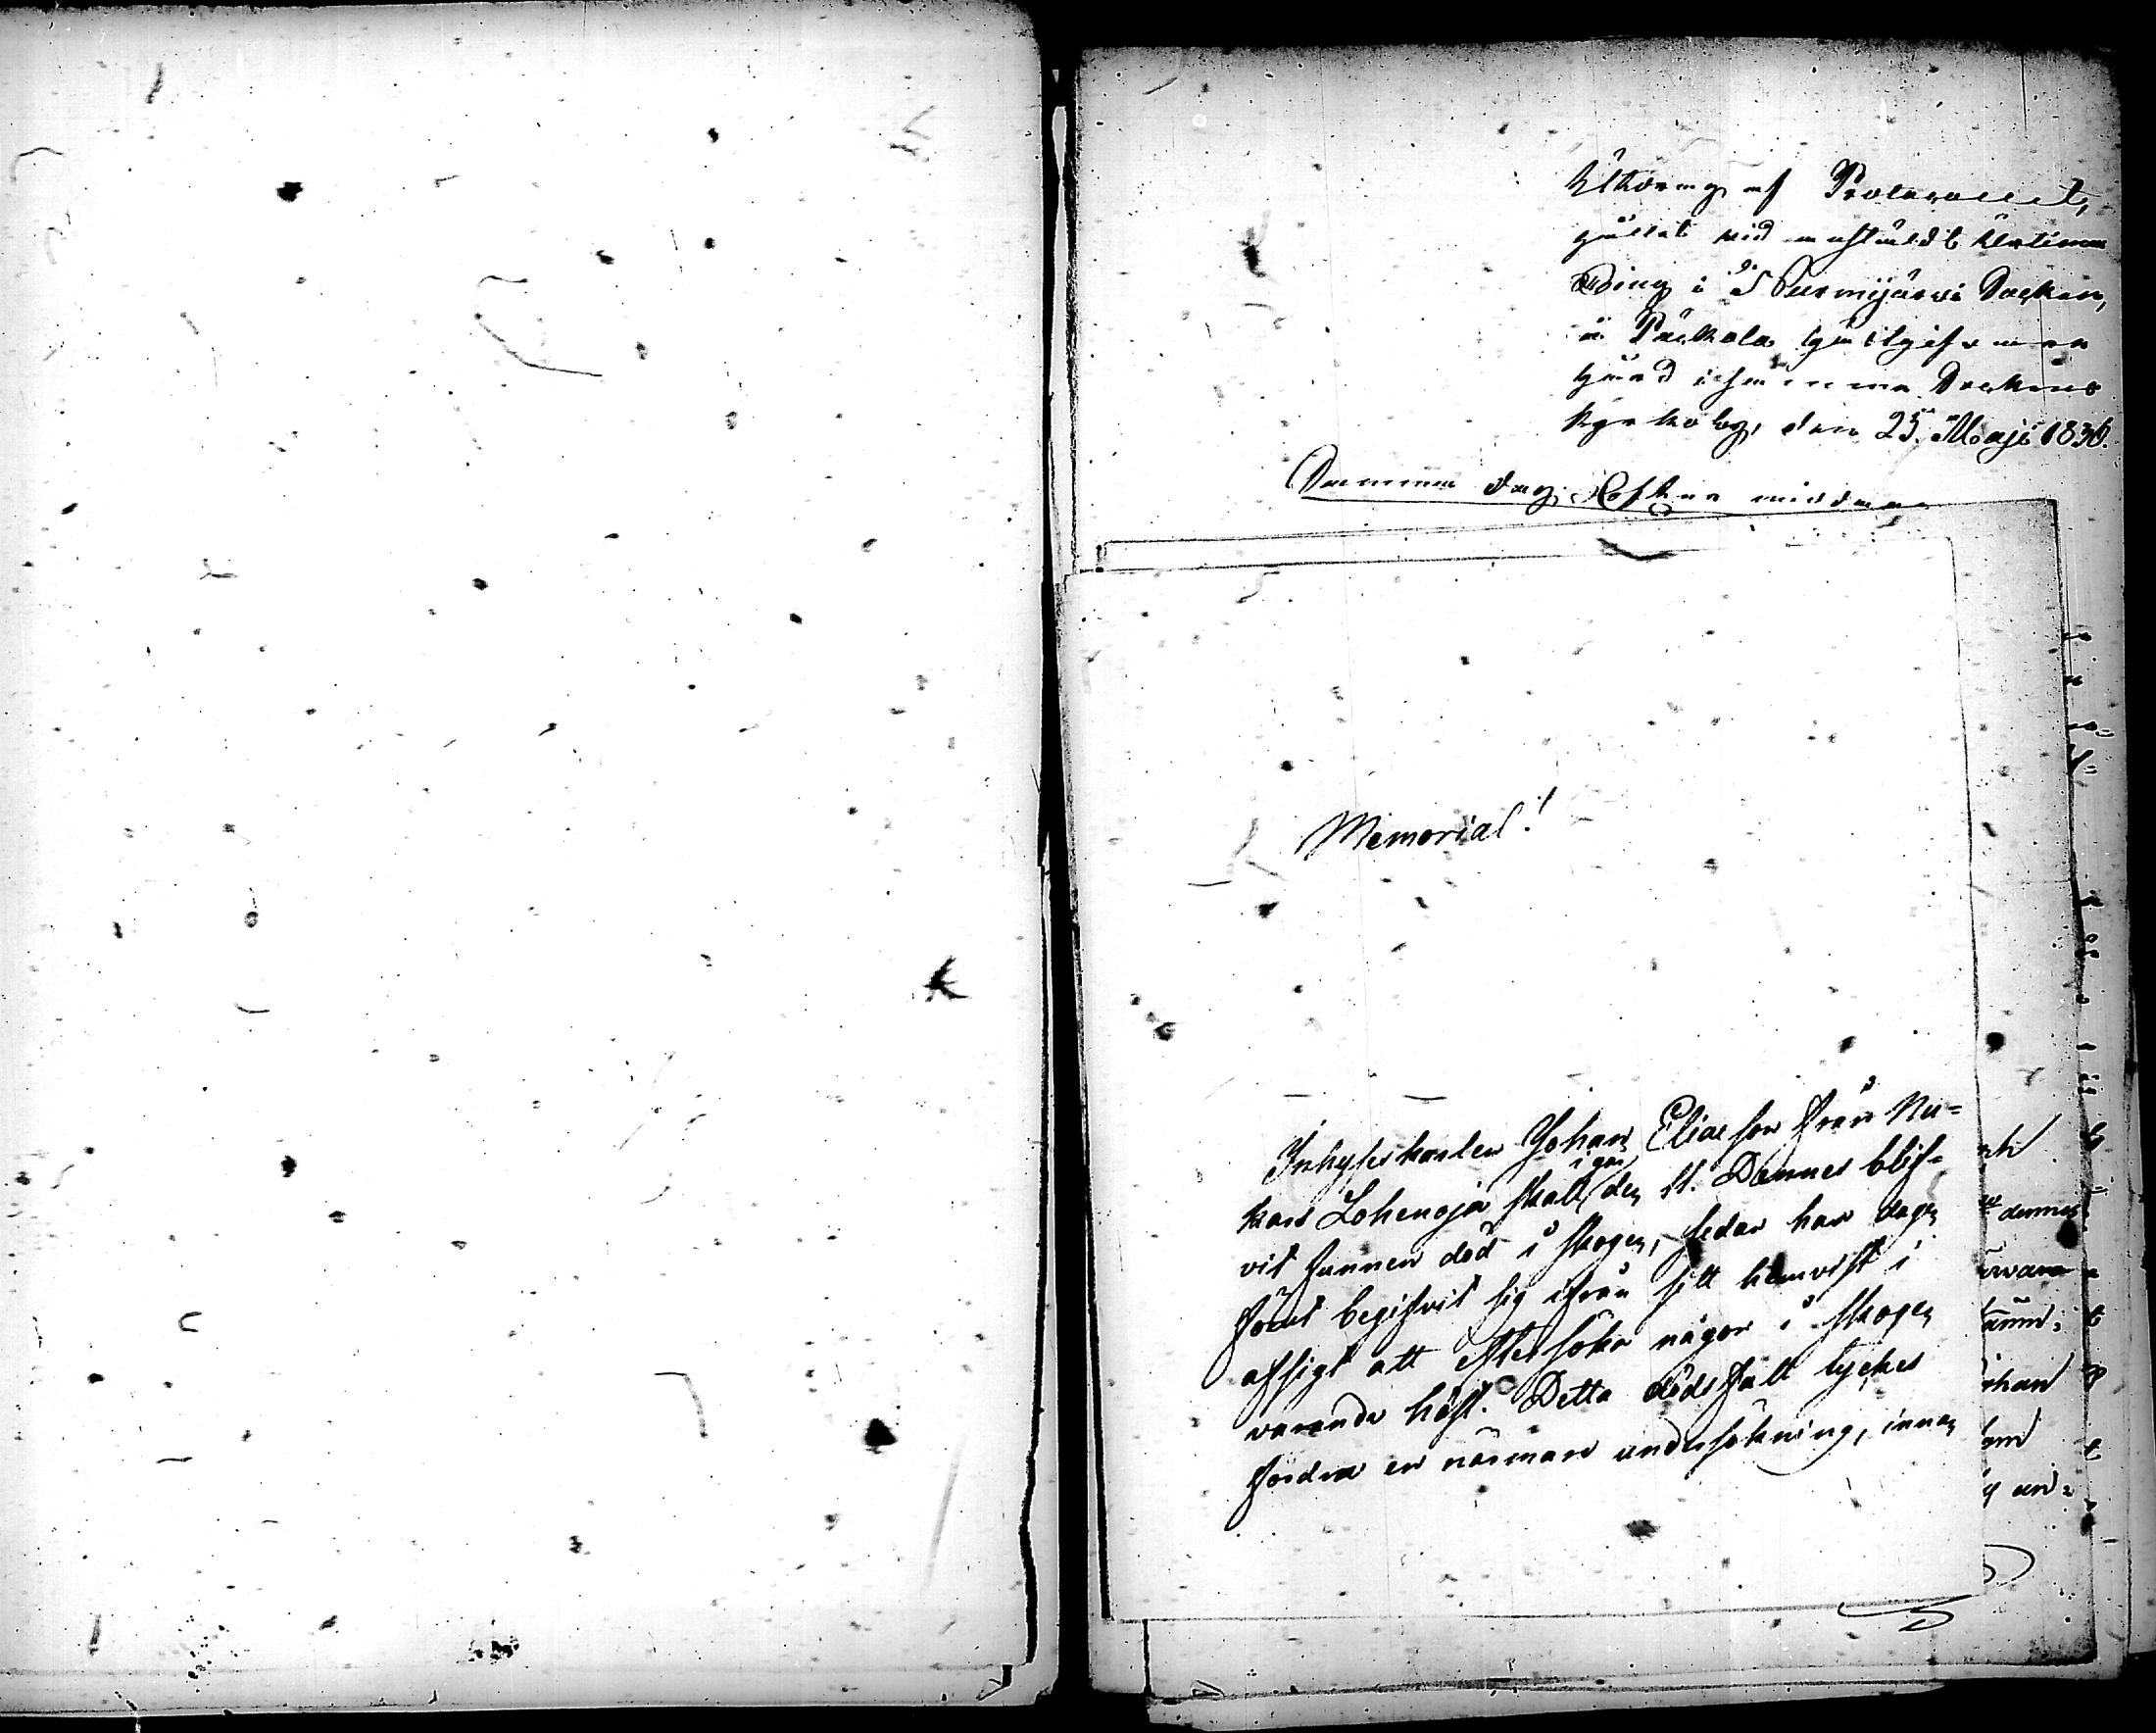 Utdrag af Protocollet,
hållet vid anstäldt Urtima
Ting i Nurmijärvi Socken,
å Packala Gästgifvare
Gård i samma Sockens
Kyrkoby, den 25 Maji 1836.
Samma dag Efter middagen
Memorial!
Inhyses karlen Johan Eliasson från Nu=
kari Lohenoja skall i går den 11. Dennes blif=
vit funnen död i skogen, sedan han dagen
förut begifvit sig ifrån sitt hemvist i
afsigt att eftersöka någon i skogen
varande häst. Detta dödsfall tyckes
fordra en närmare undersökning, innan
dennes
han
an=